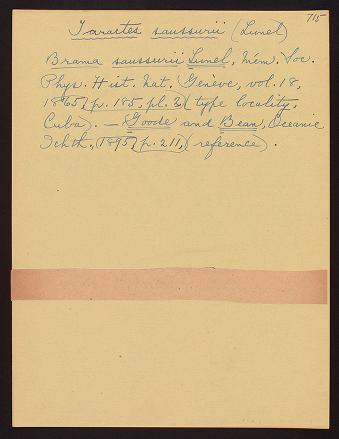 715
Taractes saussurii (Lunel)
Brama saussurii Lunel, Mém. Soc.
Phys. Hist. Nat. Genève, vol. 18,
1865, p. 185, pl. 2 (type locality,
Cuba). — Goode and Bean, Oceanic
Ichth., 1895, p. 211, (reference).